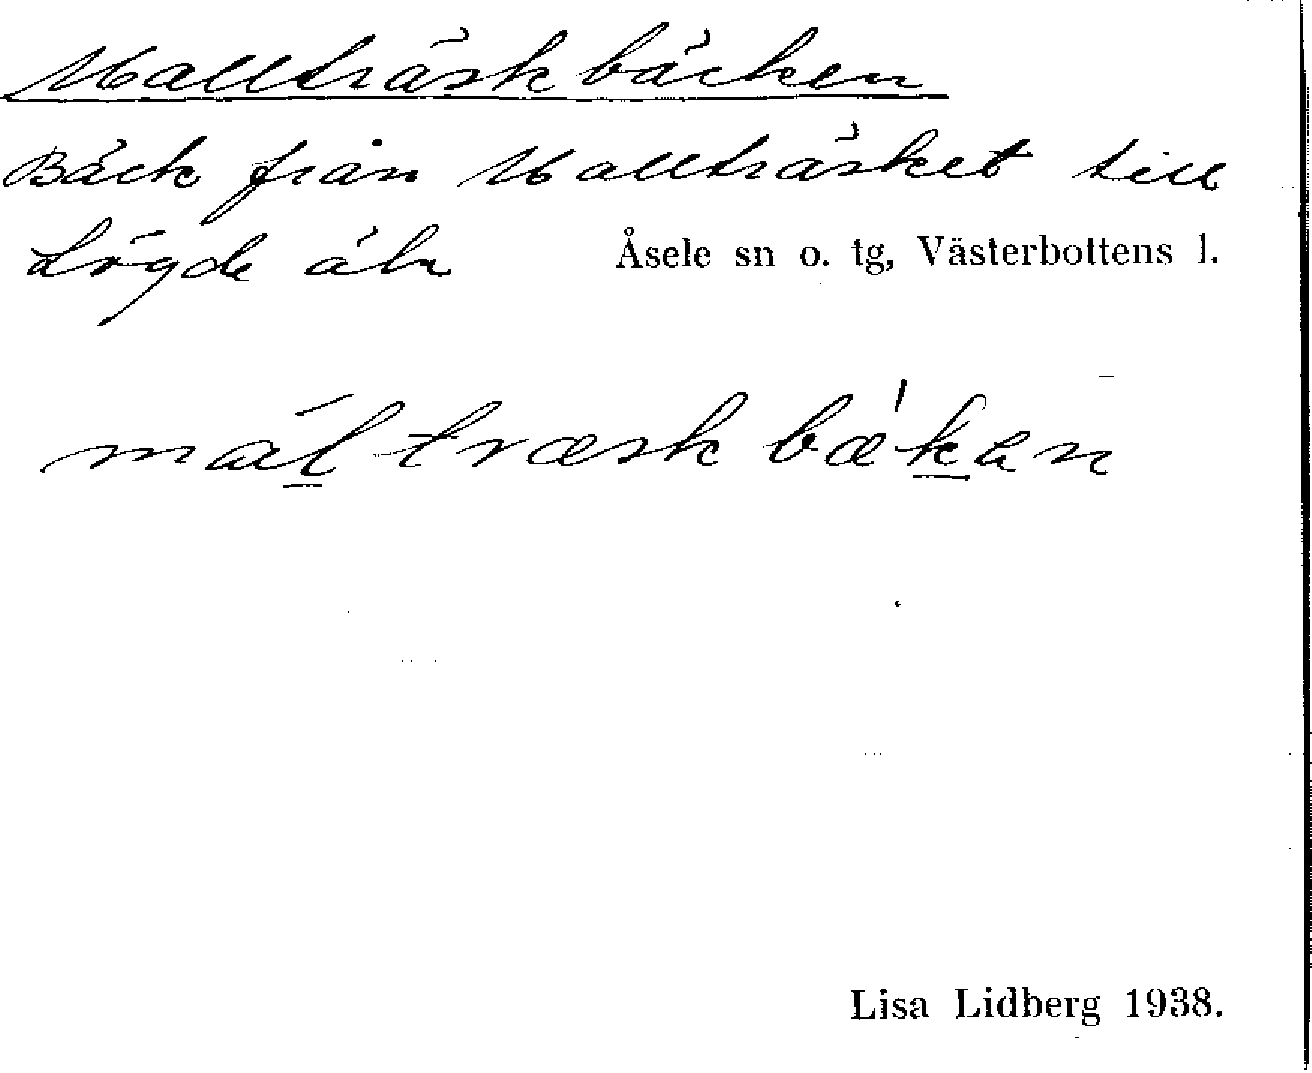 Mallträskbäcken
Bäck från Mallträsket till
Lögde älv Åsele sn o. tg, Västerbottens l.
mal træsk bækan
Lisa Lidberg 1938.